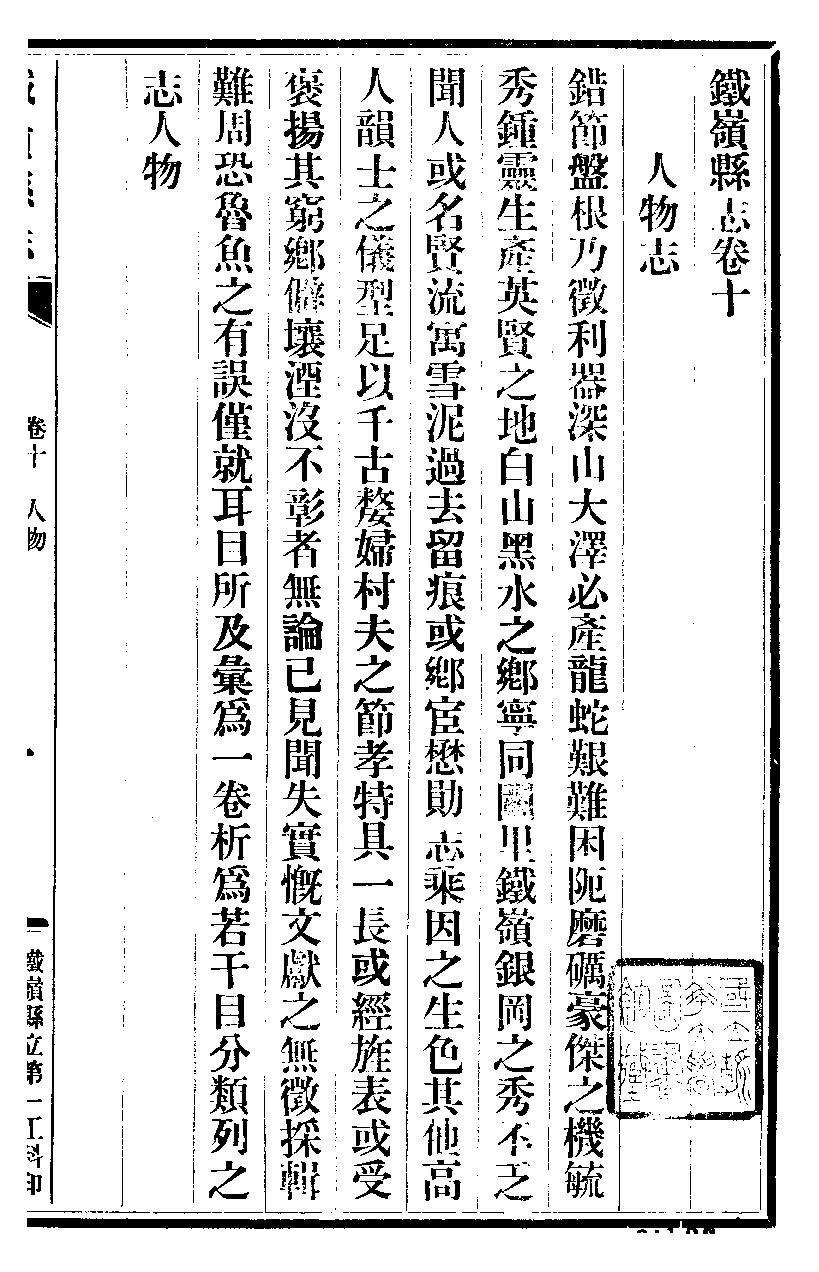 鐵嶺縣志卷十
人物志
錯節盤根乃徵利器深山大澤必產龍蛇艱難困阨磨礪豪傑之機毓
秀鍾靈生產英賢之地白山黑水之鄉寧同里鐵嶺銀岡之秀不乏
聞人或名賢流寓雪泥過去留痕或鄉宦懋勛志乘因之生色其他高
人韻士之儀型足以千古嫠婦村夫之節孝特具一長或經旌表或受
褒揚其窮鄉僻壤湮沒不彰者無論已見聞失實慨文獻之無徵採輯
難周恐魯魚之有誤僅就耳目所及彙爲一卷析爲若干目分類列之
志人物
卷十 人物
一
鐵嶺縣立第一工科印